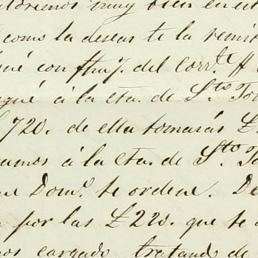 muy bien en
como la deseas te la remit
qué con fha/. del Corrte. A
aqué á la cta. de Sto. To
£720. de ella tomarás £
amos á la cta. de Sto. To
ue Domo. te ordene. De
n por las £220. que te
os cargado, tratand de